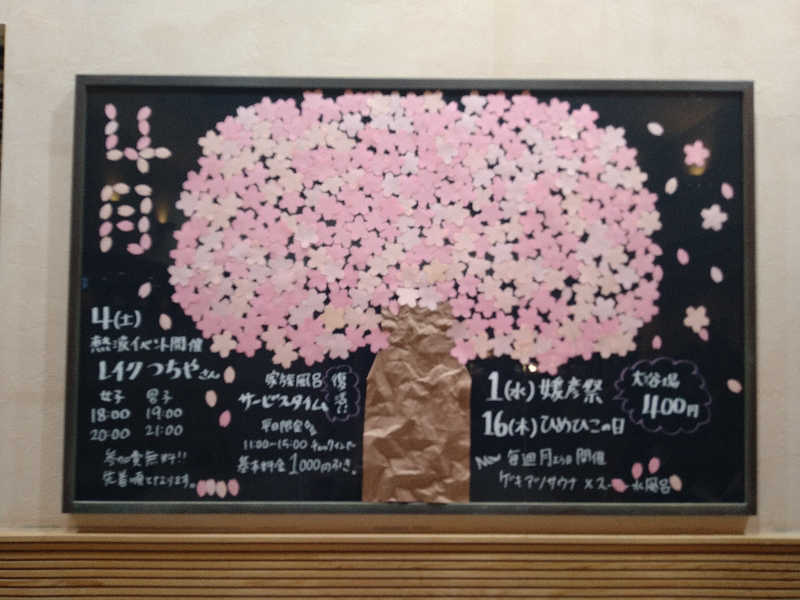 4月
4(土)
熱波イベント開催
レイク つちやさん
女子 男子
18:00 19:00
20:00 21:00
参加費無料!!
先着順となります。
家族風呂
復活!!
サービスタイム
平日限定
11:00~15:00 チェックイン
基本料金1000円引き。
1(水) 媛彦祭
大浴場
400円
16(木) ひめひこの日
Now 毎週月曜日 開催
ゲキアツサウナ × 水風呂